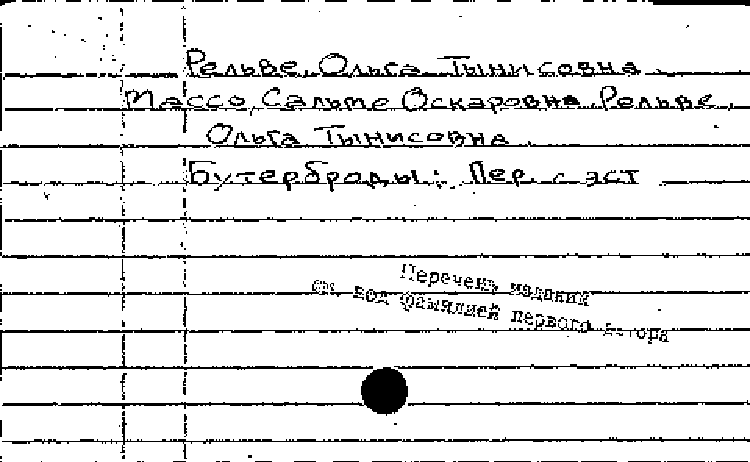 Рельве, Ольга Тынисовна
Массо, Сальме Оскаровна, Рельве,
Ольга Тынисовна
Бутерброды: Пер. с эст
Перечень изданий
см. под фамилией первого автора